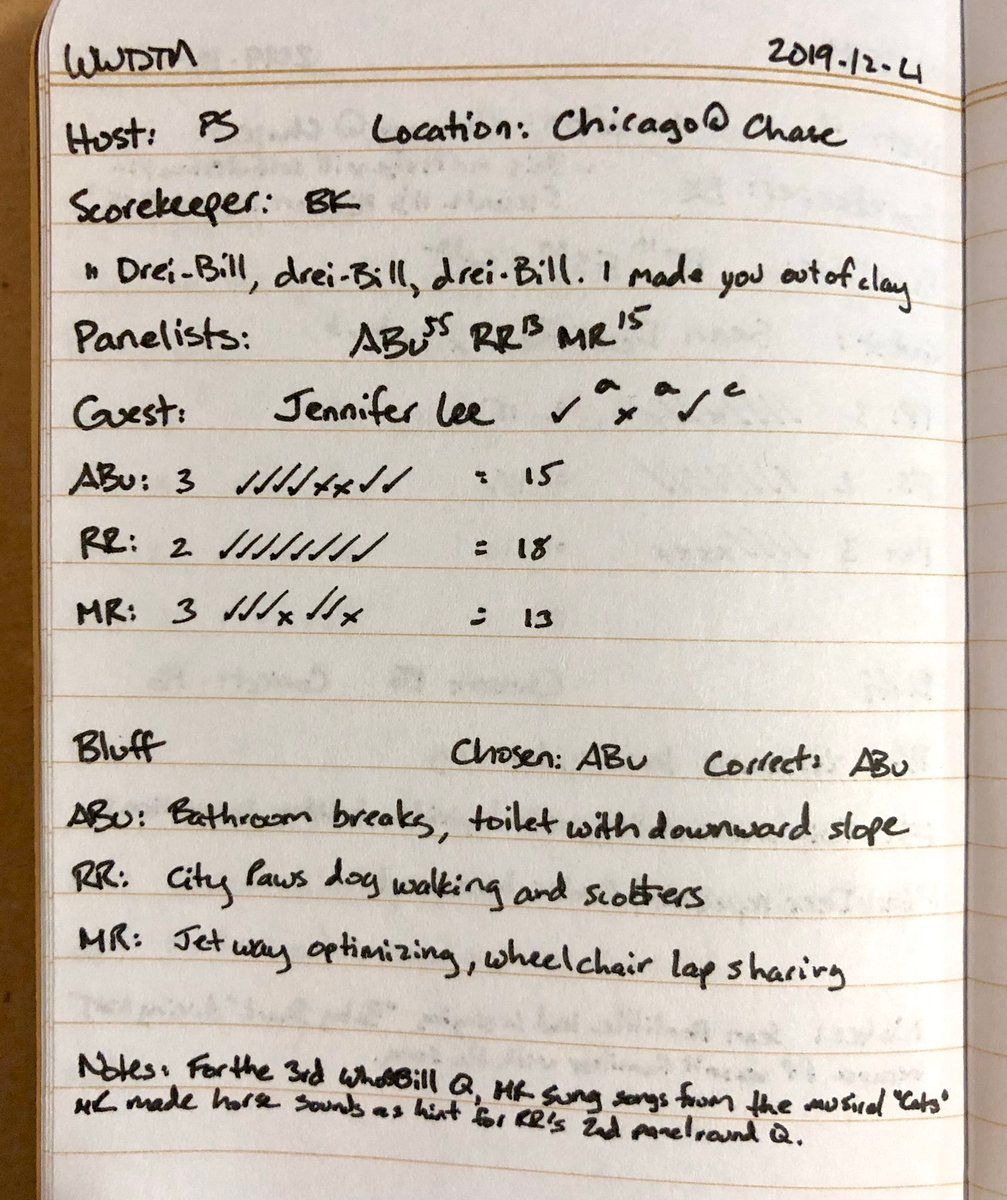 WWDTM 2019-12-21
Host: PS Location: Chicago @ Chase
Scorekeeper: BK
" Drei-Bill, drei-Bill, drei-Bill. I made you out of clay
Panelists: ABu 55 RR 13 MR 15
Guest: Jennifer Lee ✓ a x a ✓ c
ABu: 3 ✓✓✓✓xx✓✓ = 15
RR: 2 ✓✓✓✓✓✓✓✓ = 18
MR: 3 ✓✓✓x ✓✓x = 13
Bluff Chosen: ABu Correct: ABu
ABu: Bathroom breaks, toilet with downward slope
RR: City Paws dog walking and scooters
MR: Jetway optimizing, wheelchair lap sharing
Notes: For the 3rd Who's Bill Q, sung songs from the musical "Cats"
made horse sounds as hint for RR's 2nd panel round Q.